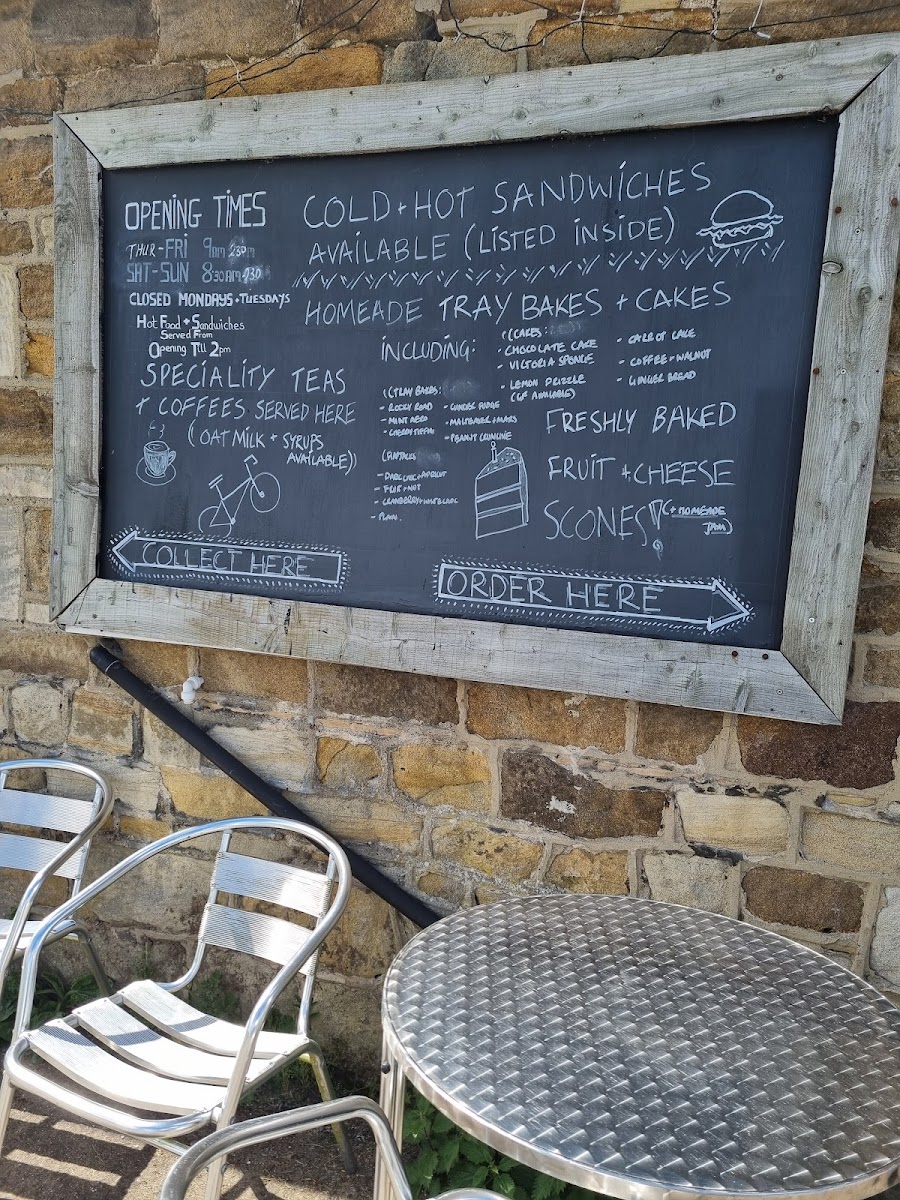 OPENING TIMES
THUR-FRI 9am
SAT-SUN 8:30AM
CLOSED MONDAYS + TUESDAYS
HOT FOOD + SANDWICHES
SERVED FROM
OPENING TILL 2pm
SPECIALITY TEAS
+ COFFEES SERVED HERE
(OAT MILK + SYRUPS
AVAILABLE))
COLLECT HERE
COLD + HOT SANDWICHES
AVAILABLE (LISTED INSIDE)
HOMEADE TRAY BAKES + CAKES
INCLUDING:
((CAKES:
- CHOCOLATE CAKE
- VICTORIA SPONGE
- LEMON DRIZZLE
(GF AVAILABLE)
- CARROT CAKE
- COFFEE + WALNUT
- GINGER BREAD
((TRAY BAKES:
- ROCKY ROAD
- MINT AERO
- CHERRY TIFFIN
- GINGER FUDGE
- MALTEASER + MARS
- PEANUT CRUNCHIE
(FLAPJACKS
- DARK CHOC + APRICOT
- FRUIT + NUT
- CRANBERRY + WHITE CHOC
- PLAIN.
FRESHLY BAKED
FRUIT + CHEESE
SCONES! (+ HOMEADE
JAM)
ORDER HERE